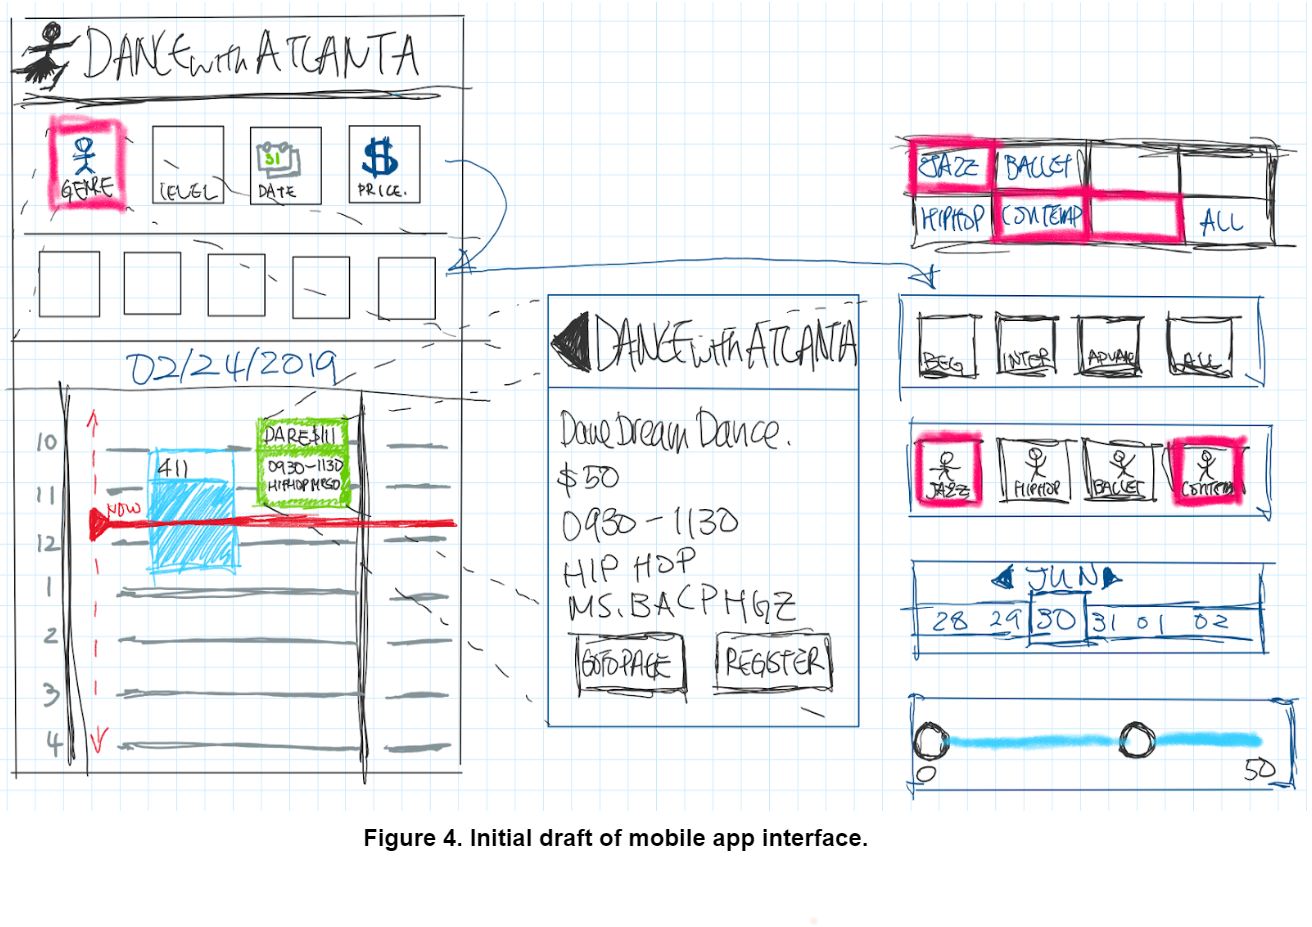 DANCE with ATLANTA
GENRE
LEVEL
31
DATE
$
PRICE.
02/24/2019
10
11
12
1
2
3
4
NOW
411
DARE $111
0930-1130
HIPHOP
DANCE with ATLANTA
Dave Dream Dance.
$50
0930-1130
HIP HOP
GOTO PAGE
REGISTER
JAZZ BALLET
HIPHOP CONTEMP ALL
BEG INTER ADVANC ALL
JAZZ HIPHOP BALLET CONTEM
JUN
28 29 30 31 01 02
0 50
Figure 4. Initial draft of mobile app interface.